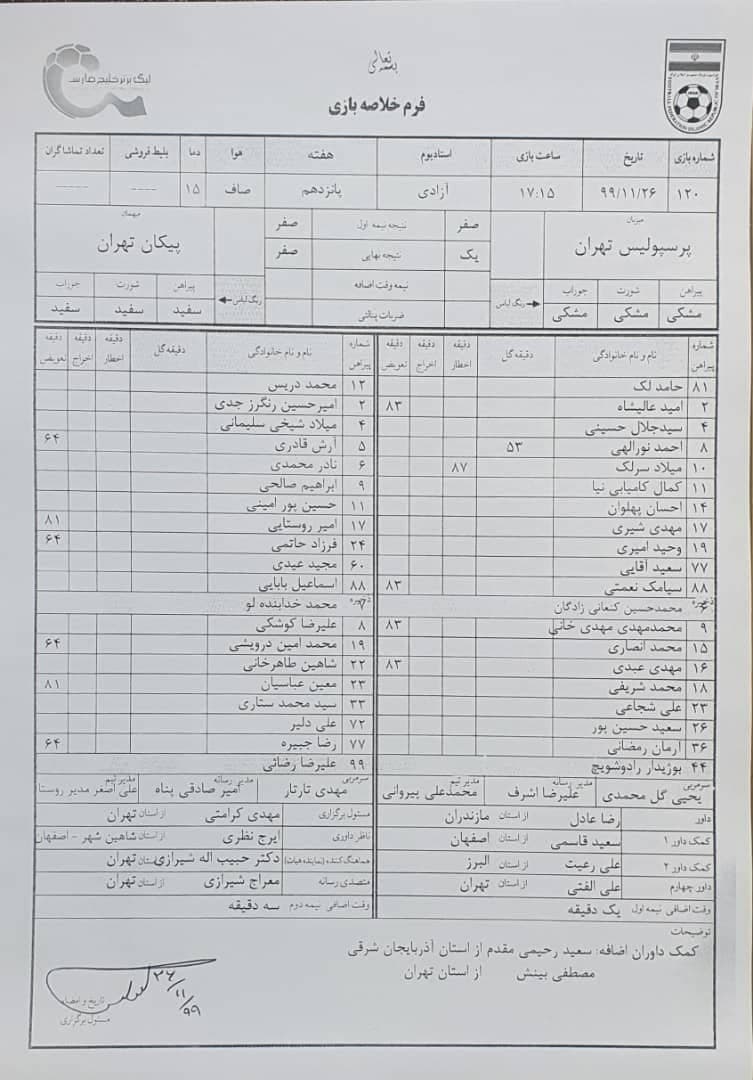 بسمه تعالی
لیگ برتر خلیج فارس
فرم خلاصه بازی
شماره بازی تاریخ ساعت بازی استادیوم هفته هوا دما بلیط فروشی تعداد تماشاگران
۱۲۰ ۹۹/۱۱/۲۶ ۱۷:۱۵ آزادی پانزدهم صاف ۱۵ ---- -----
میزبان صفر نتیجه نیمه اول صفر مهمان
پرسپولیس تهران یک نتیجه نهایی صفر پیکان تهران
نیمه وقت اضافه
پیراهن شورت جوراب رنگ لباس ضربات پنالتی رنگ لباس پیراهن شورت جوراب
مشکی مشکی مشکی سفید سفید سفید
شماره پیراهن نام و نام خانوادگی دقیقه گل دقیقه اخطار دقیقه اخراج دقیقه تعویض شماره پیراهن نام و نام خانوادگی دقیقه گل دقیقه اخطار دقیقه اخراج دقیقه تعویض
۸۱ حامد لک ۱۲ محمد دریس
۲ امید عالیشاه ۸۳ ۲ امیرحسین رنگرز جدی
۴ سیدجلال حسینی ۴ میلاد شیخی سلیمانی
۸ احمد نورالهی ۵۳ ۵ آرش قادری ۶۴
۱۰ میلاد سرلک ۸۷ ۶ نادر محمدی
۱۱ کمال کامیابی نیا ۹ ابراهیم صالحی
۱۴ احسان پهلوان ۱۱ حسین پور امینی
۱۷ مهدی شیری ۱۷ امیر روستایی ۸۱
۱۹ وحید امیری ۲۴ فرزاد حاتمی ۶۴
۷۷ سعید آقایی ۶۰ مجید عیدی
۸۸ سیامک نعمتی ۸۳ ۸۸ اسماعیل بابایی
ذخیره ۶ محمدحسین کنعانی زادگان ذخیره ۷ محمد خدابنده لو
۹ محمدمهدی مهدی خانی ۸۳ ۸ علیرضا کوشکی
۱۵ محمد انصاری ۱۹ محمد امین درویشی ۶۴
۱۶ مهدی عبدی ۸۳ ۲۲ شاهین طاهرخانی
۱۸ محمد شریفی ۲۳ معین عباسیان ۸۱
۲۳ علی شجاعی ۳۳ سید محمد ستاری
۲۶ سعید حسین پور ۷۲ علی دلیر
۳۶ آرمان رمضانی ۷۷ رضا جبیره ۶۴
۴۴ بوژیدار رادوشویچ ۹۹ علیرضا رضائی
سرمربی یحیی گل محمدی مدیر رسانه علیرضا اشرف مدیر تیم محمدعلی بیروانی سرمربی مهدی تارتار مدیر رسانه امیر صادقی پناه مدیر تیم علی اصغر مدیر روستا
داور رضا عادل از استان مازندران مسئول برگزاری مهدی کرامتی از استان تهران
کمک داور ۱ سعید قاسمی از استان اصفهان ناظر داوری ایرج نظری از استان شاهین شهر - اصفهان
کمک داور ۲ علی رعیت از استان البرز هماهنگ کننده (نماینده هیات) دکتر حبیب اله شیرازی از استان تهران
داور چهارم علی الفتی از استان تهران متصدی رسانه معراج شیرازی از استان تهران
وقت اضافی نیمه اول یک دقیقه وقت اضافی نیمه دوم سه دقیقه
توضیحات
کمک داوران اضافه: سعید رحیمی مقدم از استان آذربایجان شرقی
مصطفی بینش از استان تهران
تاریخ و امضاء
مسئول برگزاری
۲۶/۱۱/۹۹